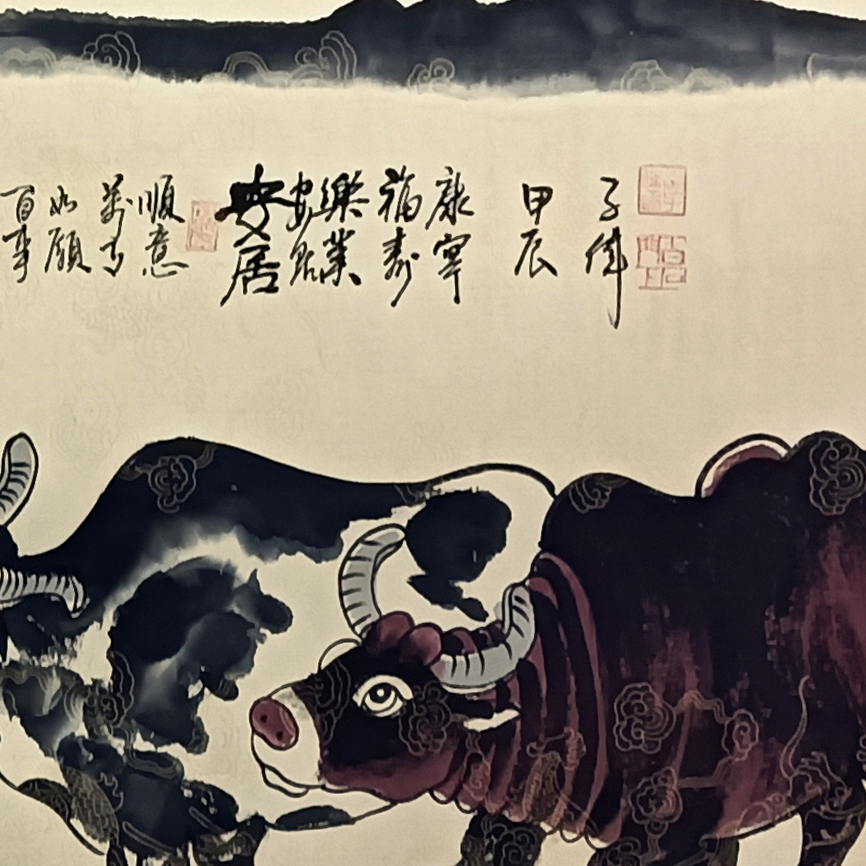 百事
如願
萬事
順意
安居
樂業
福壽
康寧
甲辰
子偉